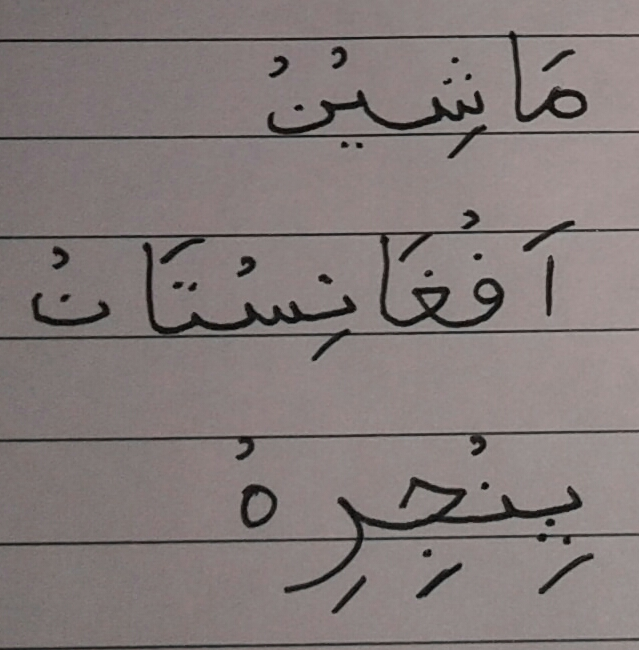 مَاشِيْنْ
اَفْغَانِسْتَانْ
پِنْجِرِهْ